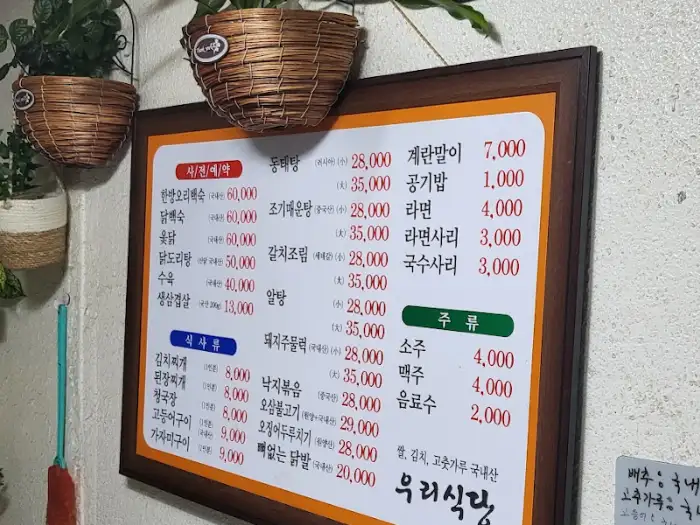 사/전/예/약
한방오리백숙 (국내산) 60,000
닭백숙 (국내산) 60,000
옻닭 (국내산) 60,000
닭도리탕 50,000
수육 (국내산) 40,000
생삼겹살 (국산 200g) 13,000
식 사 류
김치찌개 (1인분) 8,000
된장찌개 (1인분) 8,000
청국장 (1인분) 8,000
고등어구이 (국내산) 9,000
가자미구이 (1인분) 9,000
동태탕 (러시아) (小) 28,000
(大) 35,000
조기매운탕 (중국산) (小) 28,000
(大) 35,000
갈치조림 (세네갈) (小) 28,000
(大) 35,000
알탕 (小) 28,000
(大) 35,000
돼지주물럭 (국내산) (小) 28,000
(大) 35,000
낙지볶음 (중국산) 28,000
오삼불고기 29,000
오징어두루치기 (원양산) 28,000
뼈없는 닭발 (국내산) 20,000
계란말이 7,000
공기밥 1,000
라면 4,000
라면사리 3,000
국수사리 3,000
주 류
소주 4,000
맥주 4,000
음료수 2,000
쌀, 김치, 고춧가루 국내산
우리식당
배추: 국내
고추가루: 국